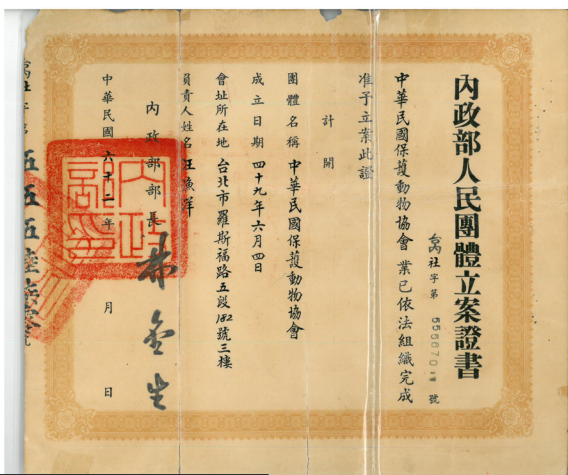 內政部人民團體立案證書
台內社字第 556670 號
中華民國保護動物協會 業已依法組織完成
准予立案此證
計開
團體名稱 中華民國保護動物協會
成立日期 四十九年六月四日
會址所在地 台北市羅斯福路五段182號三樓
負責人姓名 汪漁洋
內政部部長 林金生
中華民國六十二年 月 日